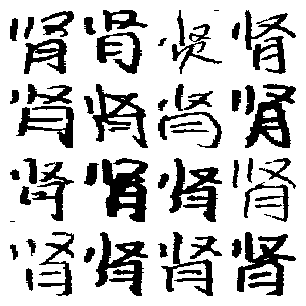 肾肾肾肾
肾肾肾肾
肾肾肾肾
肾肾肾肾